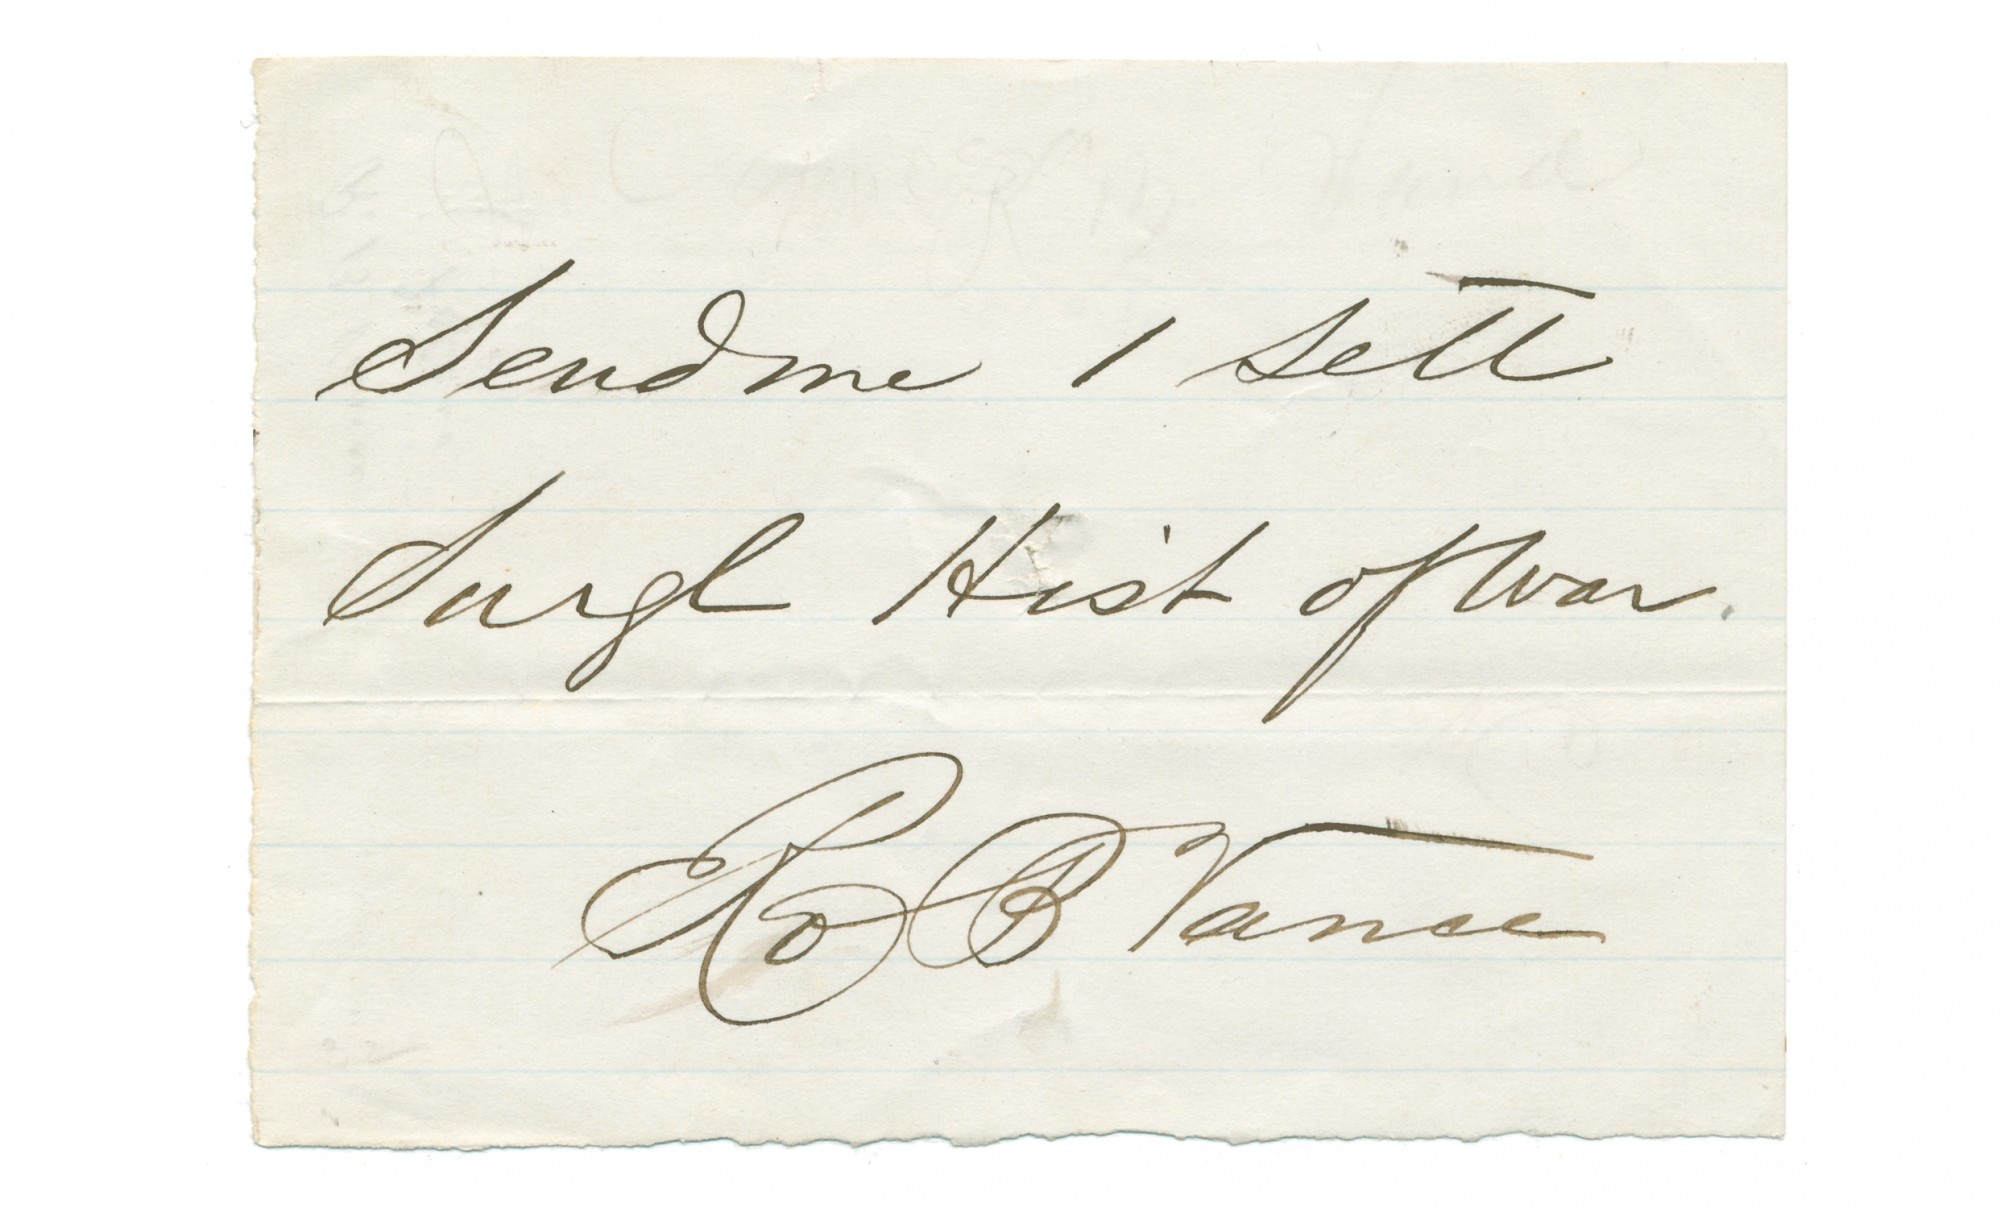 Send me 1 Sett
Surgl Hist of War.
Ro B Vance